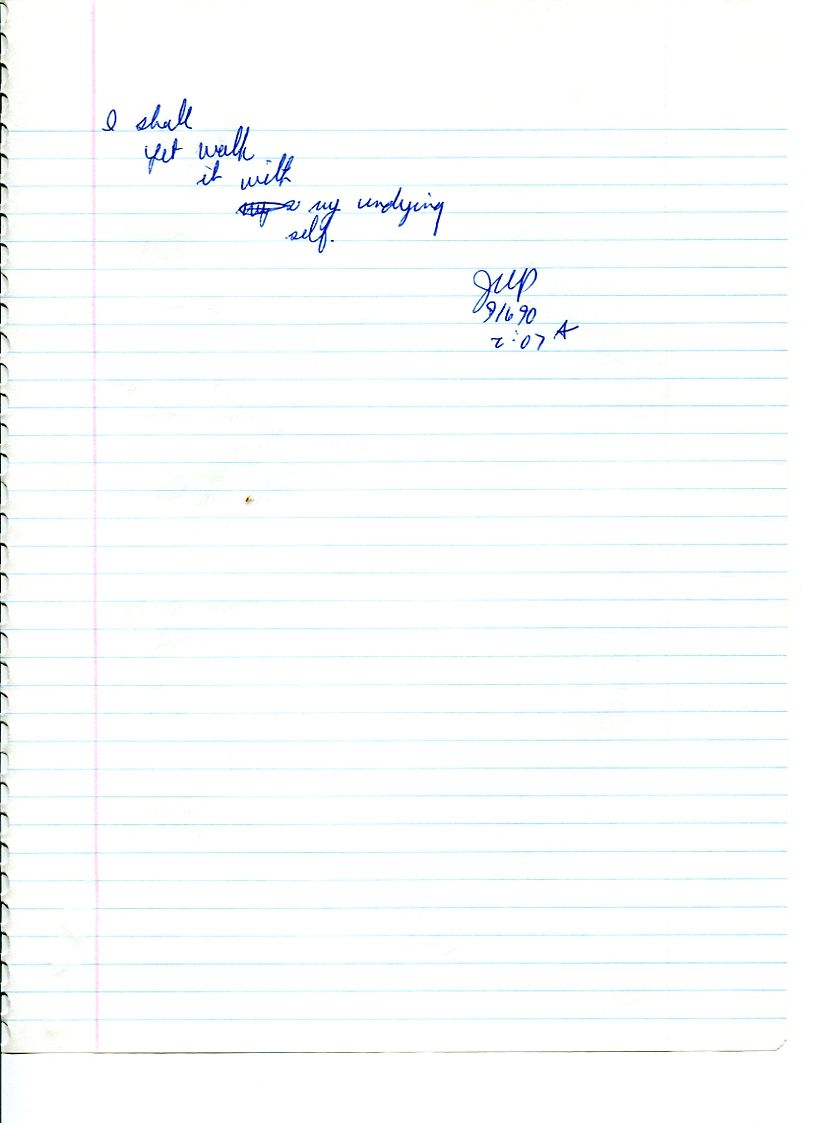 I shall
yet walk
it with
my undying
self.
JWP
9/6 90
2:07 A